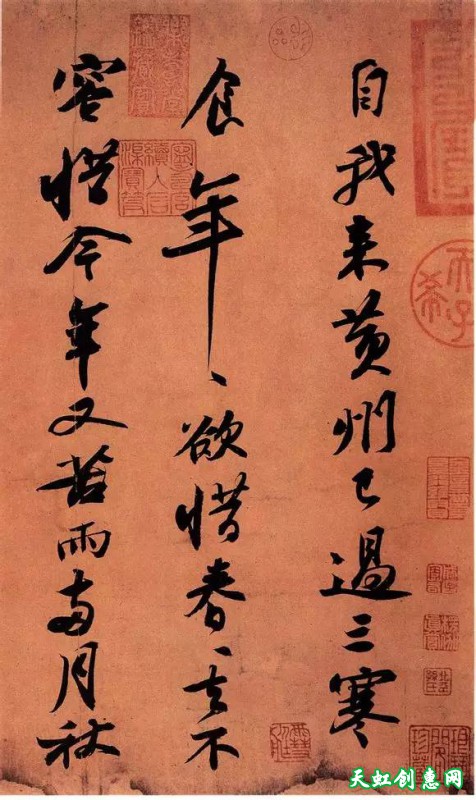 自我来黄州已過三寒
食年〻欲惜春〻去不
容惜今年又苦雨兩月秋
天子
古希
天虹创惠网